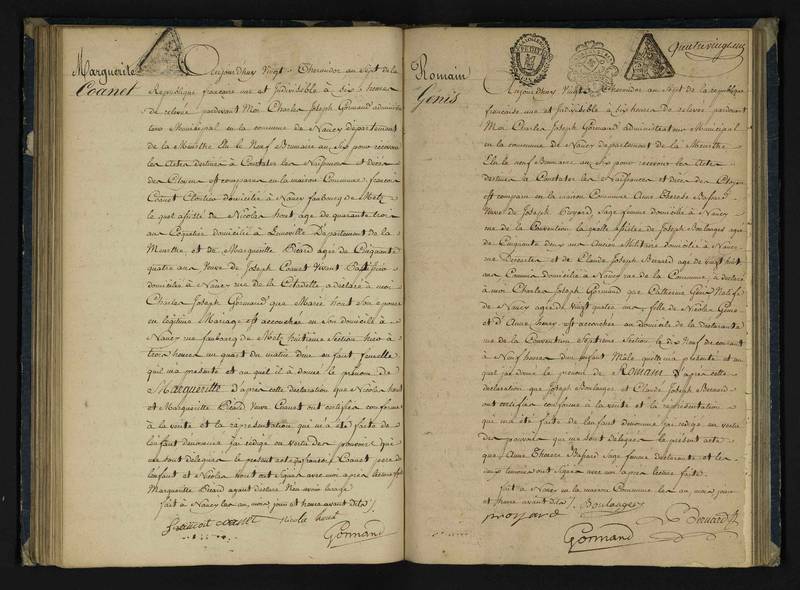 Marguerite
Coanet
Aujourdhuy vingt Thermidor an Sept de la
République française une et Indivisible à Six heures
de relevée pardevant Moi Charles Joseph Gormand administra
teur Municipal en la commune de Nancy département
de la Meurthe Elu le Neuf Brumaire an Six pour recevoir
les Actes destinés à Constater les Naissances et décès
des Citoyens est comparu en la maison Commune françois
Coanet Cloutier domicilié à Nancy faubourg de Metz
lequel assisté de Nicolas hout agé de quarante trois
ans domicilié à Luneville Département de la
Meurthe et de Marguerite Picard agée de Cinquante
quatre ans veuve de Joseph Coanet vivant
domiciliée à Nancy rue de la Citadelle a déclaré à moi
Charles Joseph Gormand que Marie hout Son epouse
en légitime Mariage est accouchée en Son domicile à
Nancy rue faubourg de Metz huitieme Section hier à
trois heures un quart du matin d'un enfant femelle
qu'il m'a présenté et auquel il a donné le prénom de
Marguerite D'après cette déclaration que Nicolas hout
et Marguerite Picard veuve Coanet ont certifiée conforme
à la vérité et la représentation qui m'a été faite de
l'enfant denommé j'ai rédigé en vertu des pouvoirs qui
me sont délégués le présent acte que françois Coanet pere de
l'enfant et Nicolas hout ont Signé avec moi après lecture faite
Marguerite Picard ayant déclaré n'en avoir l'usage
fait à Nancy les an, mois jour et heure avant dits
francoit coanet
nicolas hout
Gormand
quatre vingt
Romain
Genis
Aujourdhuy vingt Thermidor an Sept de la république
française une et Indivisible à Six heures de relevée pardevant
Moi Charles Joseph Gormand administrateur Municipal
en la commune de Nancy département de la Meurthe
Elu le neuf Brumaire an Six pour recevoir les Actes
destinés à Constater les Naissances et décès des Citoyens
est comparu en la maison Commune Anne Therese Bassard
veuve de Joseph Proyard Sage femme domiciliée à Nancy
rue de la Convention laquelle assistée de Joseph Boulanger agé
de Cinquante deux ans Ancien Militaire domicilié à Nancy
rue et de Claude Joseph Bernard agé de vingt huit
ans Commis domicilié à Nancy rue de la Commune, a déclaré
à moi Charles Joseph Gormand que Catherine Genis Native
de Nancy agée de vingt quatre ans, fille de Nicolas Genis
et d'Anne henry est accouchée au domicile de la déclarante
rue de la Convention Septieme Section le dix Neuf du courant
à Neuf heures d'un enfant Mâle qu'elle m'a présenté et au
quel j'ai donné le prénom de Romain D'après cette
déclaration que Joseph Boulanger et Claude Joseph Bernard
ont certifiée conforme à la vérité et la représentation
qui m'a été faite de l'enfant denommé j'ai rédigé en vertu
des pouvoirs qui me sont délégués le présent acte
que Anne Therese Bassard Sage femme déclarante et les
deux temoins ont Signé avec moi après lecture faite
fait à Nancy en la maison Commune les an, mois jour
et heure avant dits
Boulanger
proyard
Bernard
Gormand